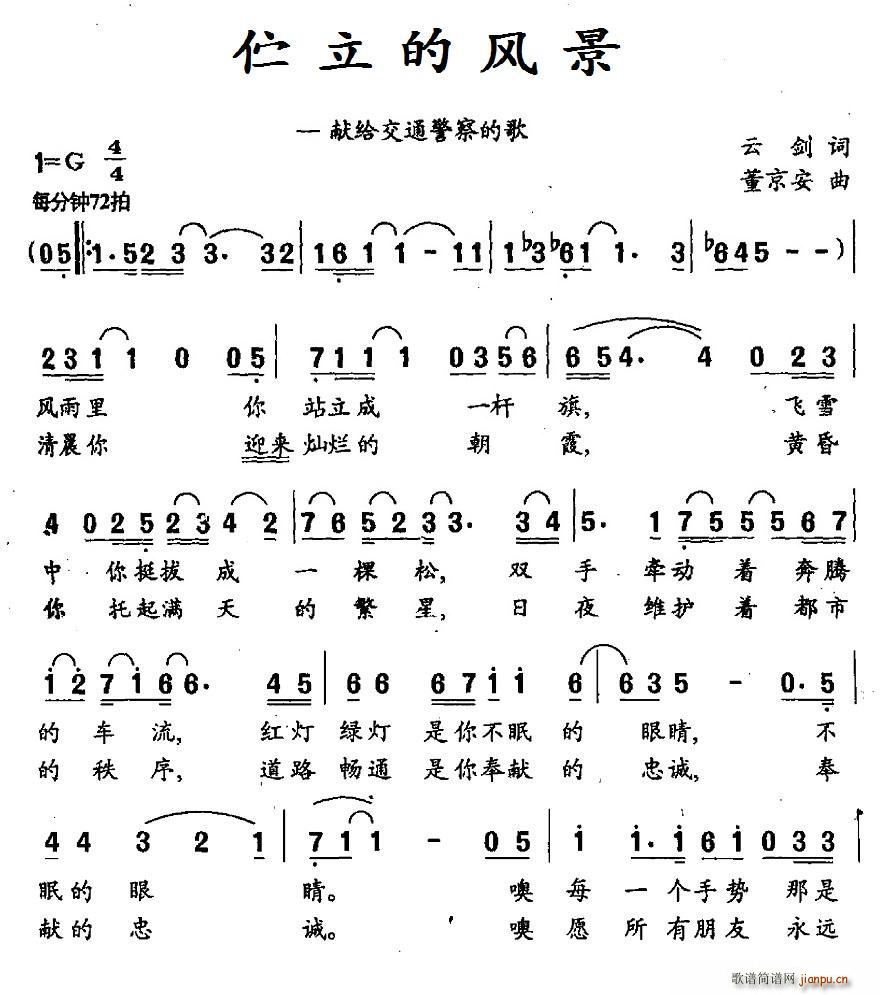 伫立的风景
—献给交通警察的歌
1=G 4/4
云 剑 词
每分钟72拍
董京安 曲
(05 ‖: 1·523 3· 32 | 161 1 - 11 | 1♭3♭61 1· 3 | ♭645 - - ) |
231 1 0 05 | 711 1 0356 | 654· 4 0 23 |
风雨里 你 站立成 一杆 旗, 飞雪
清晨你 迎来 灿烂的 朝 霞, 黄昏
4 025 23 4 2 | 76 523 3· 34 | 5· 1 755 567 |
中 你挺拔 成 一 棵 松, 双 手 牵动 着 奔腾
你 托起满 天 的 繁 星, 日 夜 维护 着 都市
12 716 6· 45 | 66 6711 6 | 635 - 0·5 |
的 车 流, 红灯 绿灯 是你不眠 的 眼睛, 不
的 秩 序, 道路 畅通 是你奉献 的 忠诚, 奉
44 3 2 1 | 71 1 - 05 | 1 1·1 61 033 |
眠的 眼 睛。 噢 每 一 个手势 那是
献的 忠 诚。 噢 愿 所 有朋友 永远
歌谱简谱网 jianpu.cn